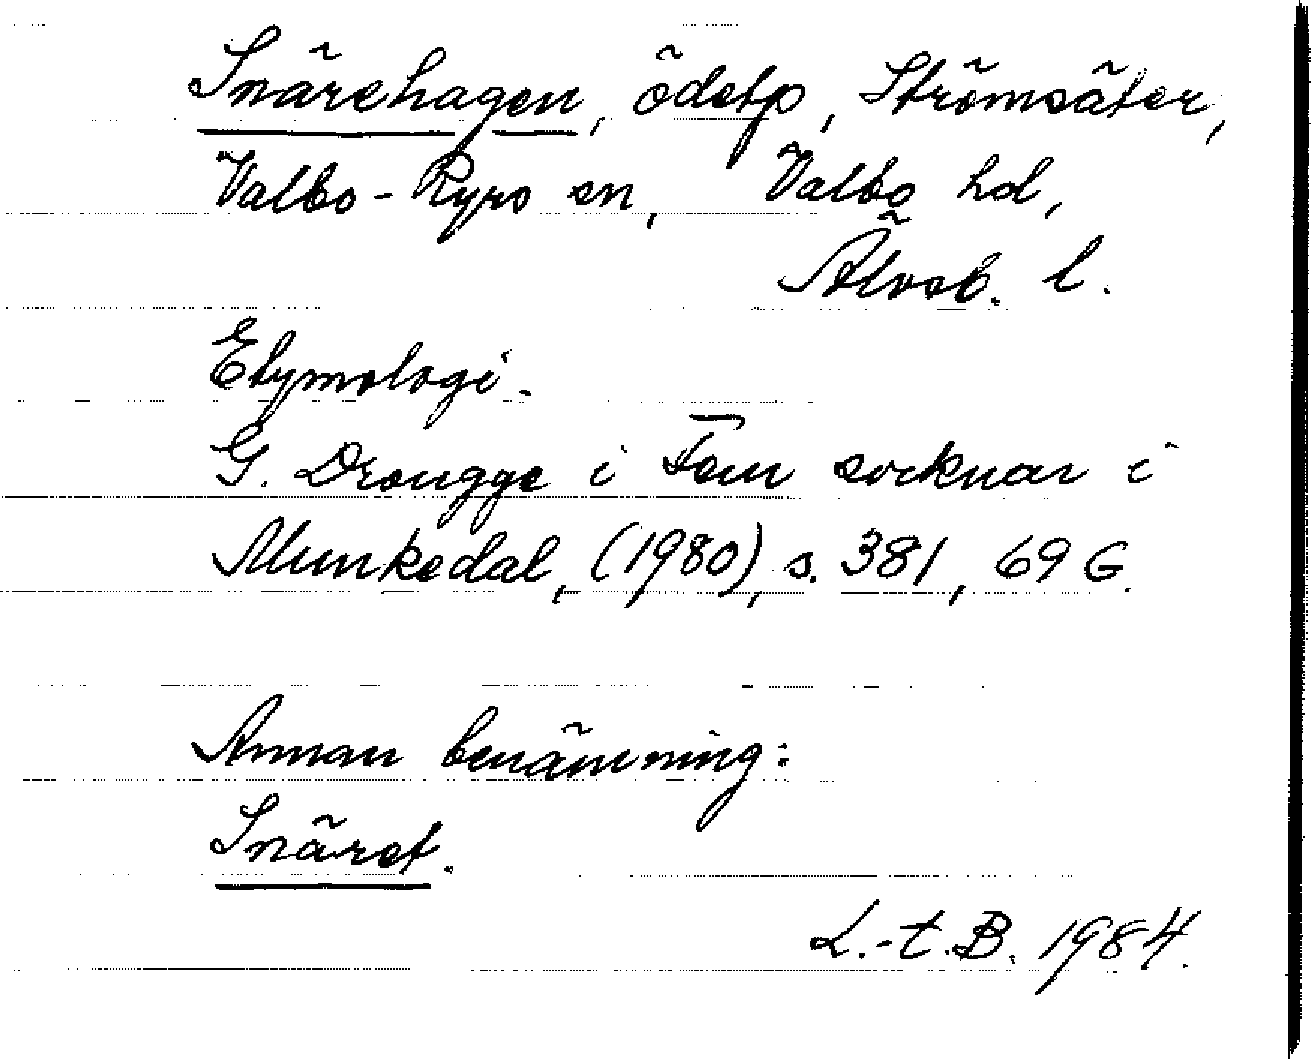 Snärehagen, ödetp, Strömsäter,
Valbo-Ryrs sn, Valbo hd,
Älvsb. l.
Etymologi.
G. Drougge i Fem socknar i
Munkedal, (1980), s. 381, 69 G.
Annan benämning:
Snäret.
L.-t.B. 1984.